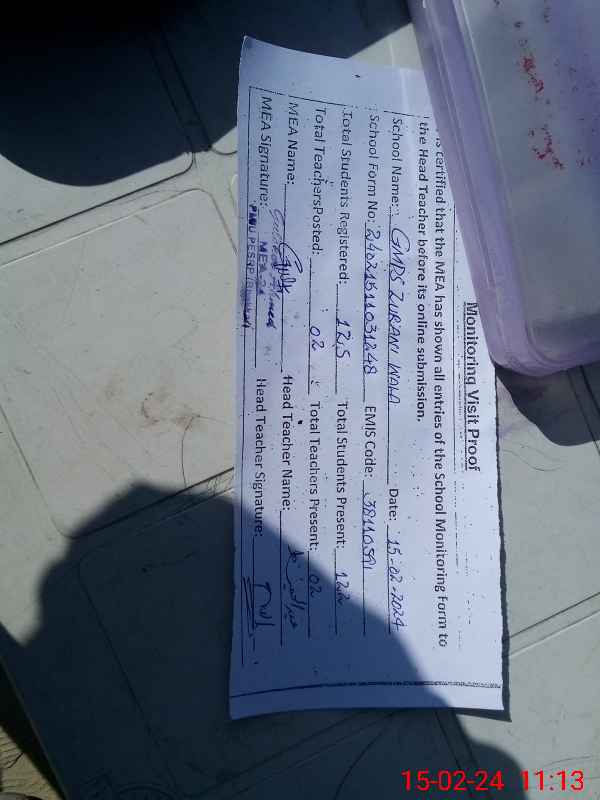 Monitoring Visit Proof
is certified that the MEA has shown all entries of the School Monitoring Form to
the Head Teacher before its online submission.
School Name: GMPS ZURANI WALA Date: 15-02-2024
School Form No: 24021511031248 EMIS Code: 38110591
Total Students Registered: 125 Total Students Present: 122
Total TeachersPosted: 02 Total Teachers Present: 02
MEA Name: Head Teacher Name:
MEA Signature: MEA Head Teacher Signature:
15-02-24 11:13